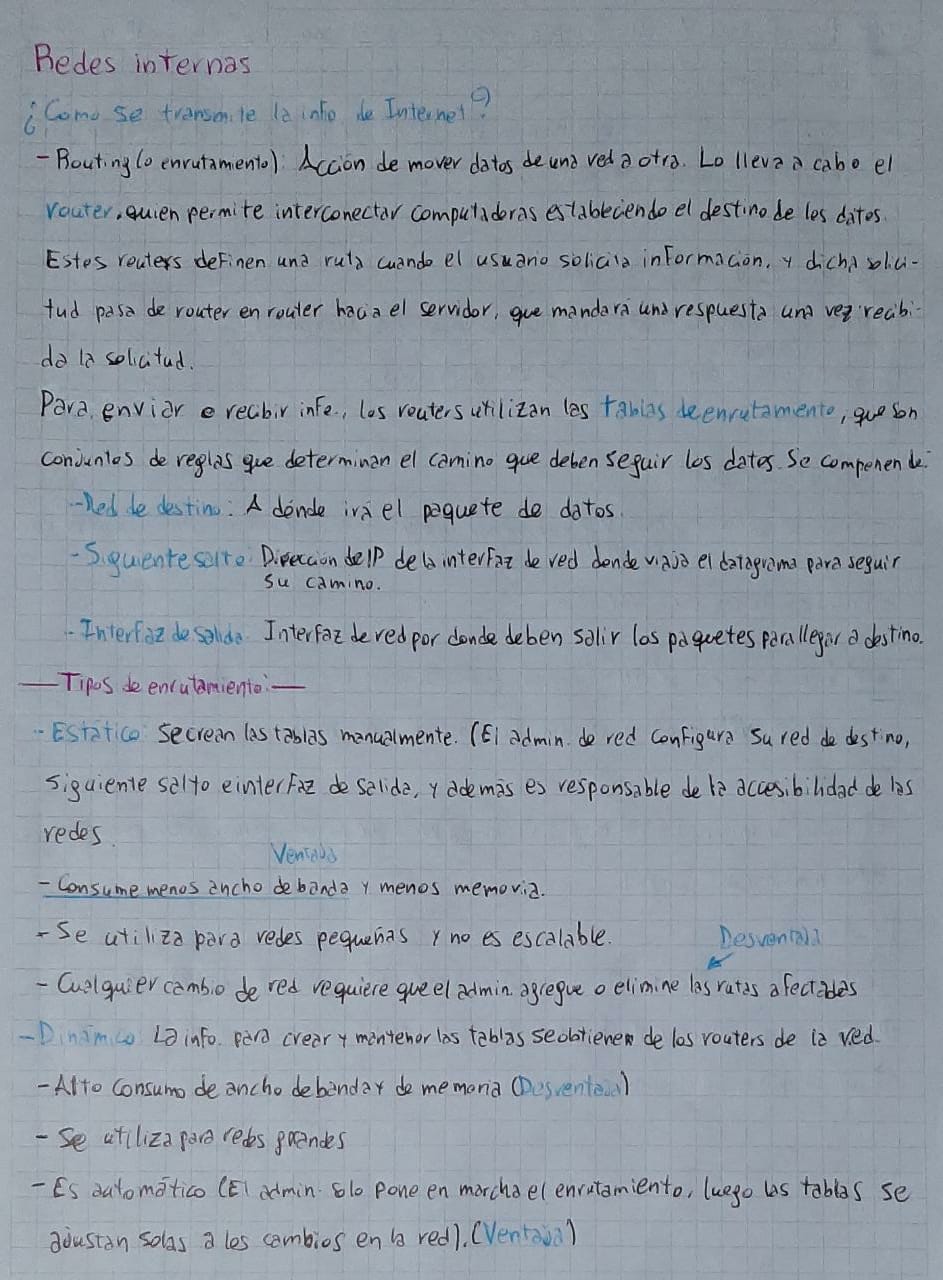 Redes internas
¿Como se transmite la info de Internet?
- Routing (o enrutamento): Acción de mover datos de una red a otra. Lo lleva a cabo el
router, quien permite interconectar computadoras estableciendo el destino de los datos.
Estos routers definen una ruta cuando el usuario solicita información, y dicha solici-
tud pasa de router en router hacia el servidor, que mandará una respuesta una vez recibi-
da la solicitud.
Para enviar o recibir info., los routers utilizan las tablas de enrutamento, que son
conjuntos de reglas que determinan el camino que deben seguir los datos. Se componen de:
- Red de destino: A dónde irá el paquete de datos.
- Siguiente salto: Dirección de IP de la interfaz de red donde viaja el datagrama para seguir
su camino.
- Interfaz de salida: Interfaz de red por donde deben salir los paquetes para llegar a destino.
— Tipos de enrutamiento: —
- Estático: Se crean las tablas manualmente. (El admin. de red configura su red de destino,
siguiente salto e interfaz de salida, y además es responsable de la accesibilidad de las
redes.
Ventaja
- Consume menos ancho de banda y menos memoria.
- Se utiliza para redes pequeñas y no es escalable.
Desventaja
- Cualquier cambio de red requiere que el admin. agregue o elimine las rutas afectadas
- Dinámico: La info. para crear y mantener las tablas se obtienen de los routers de la red.
- Alto consumo de ancho de banda y de memoria (Desventaja)
- Se utiliza para redes grandes
- Es automático (El admin. solo pone en marcha el enrutamiento, luego las tablas se
ajustan solas a los cambios en la red). (Ventaja)